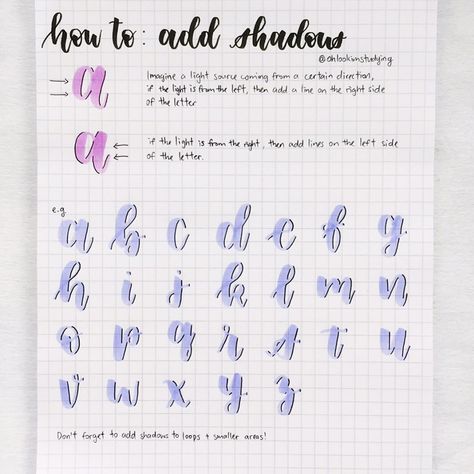 how to: add shadows
@ohlookimstudying
Imagine a light source coming from a certain direction,
if the light is from the left, then add a line on the right side
of the letter
a
if the light is from the right, then add lines on the left side
of the letter.
a
e.g.
a b c d e f g
h i j k l m n
o p q r s t u
v w x y z
Don't forget to add shadows to loops + smaller areas!